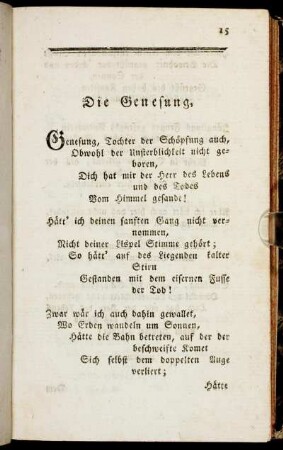 15
Die Genesung.
Genesung, Tochter der Schöpfung auch,
Obwohl der Unsterblichkeit nicht ge-
boren,
Dich hat mir der Herr des Lebens
und des Todes
Vom Himmel gesandt!
Hätt' ich deinen sanften Gang nicht ver-
nommen,
Nicht deiner Lispel Stimme gehört;
So hätt' auf des Liegenden kalter
Stirn
Gestanden mit dem eisernen Fusse
der Tod!
Zwar wär ich auch dahin gewallet,
Wo Erden wandeln um Sonnen,
Hätte die Bahn betreten, auf der der
beschweifte Komet
Sich selbst dem doppelten Auge
verliert;
Hätte